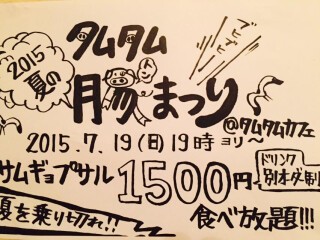 2015
夏の
タムタム
豚まつり
ブヒブヒ
2015.7.19(日)19時ヨリ〜
@タムタムカフェ
サムギョプサル 1500円
ドリンク
別オーダー制
夏を乗り切れ!!
食べ放題!!!